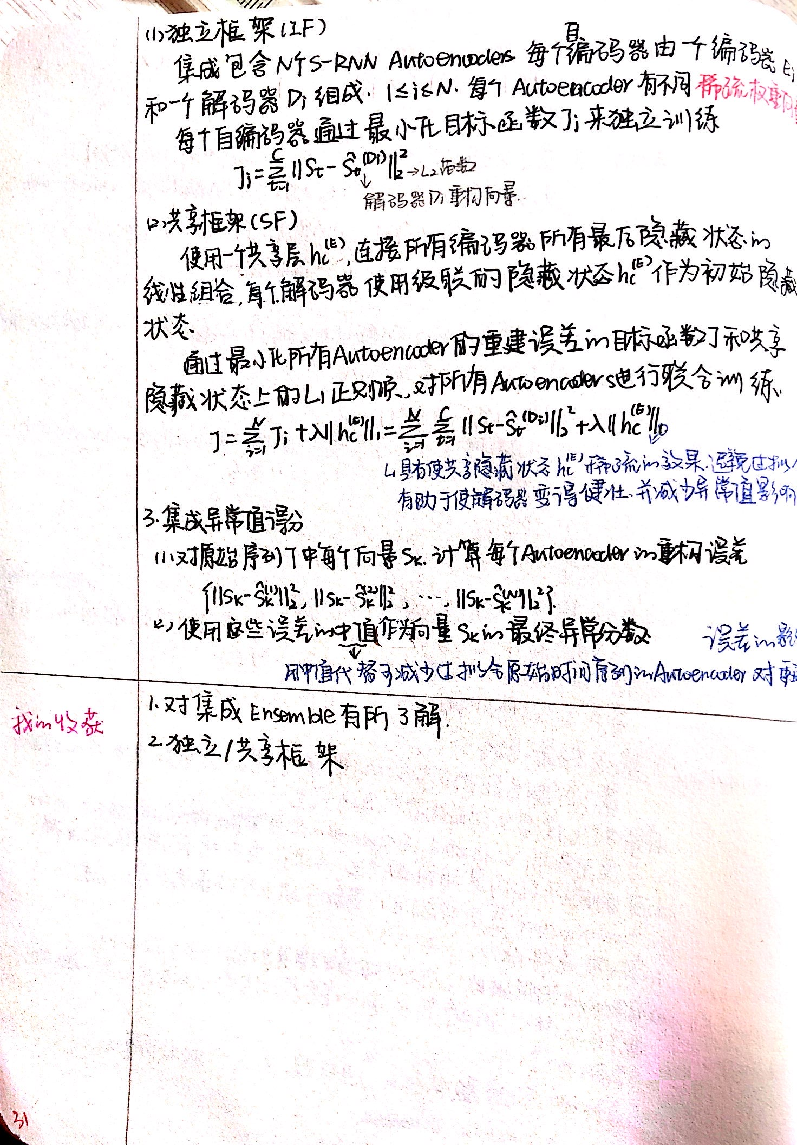 (1)独立框架(IF)
集成包含N个S-RNN Autoencoders 每个自编码器由一个编码器Ei
和一个解码器Di组成. 1≤i≤N. 每个Autoencoder有不同稀疏权重
每个自编码器通过最小化目标函数Ji来独立训练
Ji=∑_{t=1}^{C}||St-Ŝt^(Di)||₂² →L2范数
解码器Di重构向量
(2)共享框架(SF)
使用一个共享层hc^(E),连接所有编码器所有最后隐藏状态的
线性组合,每个解码器使用级联的隐藏状态hc^(E)作为初始隐藏
状态.
通过最小化所有Autoencoder的重建误差的目标函数J和共享
隐藏状态上的L1正则项,对所有Autoencoders进行联合训练.
J=∑_{i=1}^{N}Ji+λ||hc^(E)||₁=∑_{i=1}^{N}∑_{t=1}^{C}||St-Ŝt^(Di)||₂²+λ||hc^(E)||
L1具有使共享隐藏状态hc^(E)稀疏的效果.避免过拟
有助于使解码器变得健壮.并减少异常值影响
3.集成异常值得分
(1)对原始序列T中每个向量Sk.计算每个Autoencoder的重构误差
{||Sk-Ŝk^(1)||₂², ||Sk-Ŝk^(2)||₂², ⋯, ||Sk-Ŝk^(N)||₂²}.
(2)使用这些误差的中值作为向量Sk的最终异常分数.
误差的影
用中值代替可减少过拟合原始时间序列的Autoencoder对重
我的收获
1.对集成Ensemble有所了解.
2.独立/共享框架
31